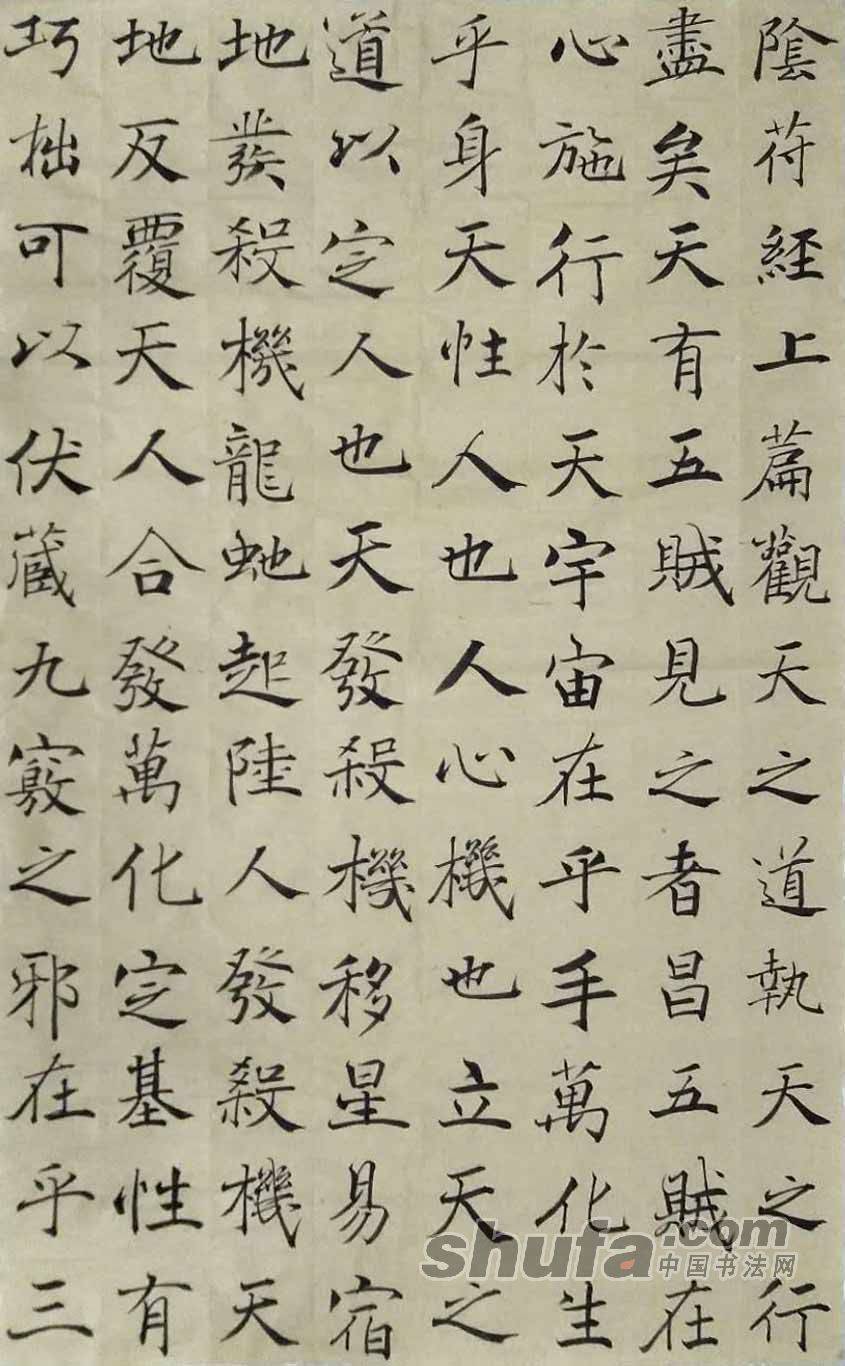 陰符經上篇觀天之道執天之行
盡矣天有五賊見之者昌五賊在
心施行於天宇宙在乎手萬化生
乎身天性人也人心機也立天之
道以定人也天發殺機移星易宿
地發殺機龍虵起陸人發殺機天
地反覆天人合發萬化定基性有
巧拙可以伏藏九竅之邪在乎三
shufa.com
中国书法网